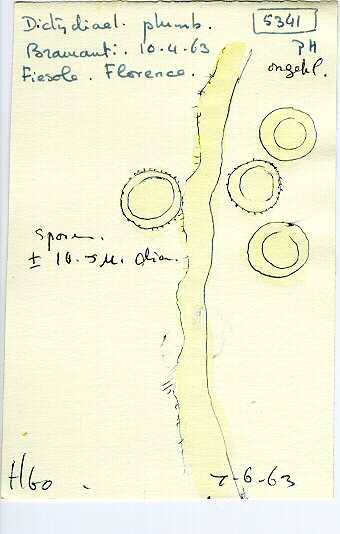 Dictydiael. plumb.
5341
Bramanti. 10.4.63
PH
Fiesole. Florence.
ongekl.
Sporen.
± 10.5 µ. diam.
H60
7-6-63